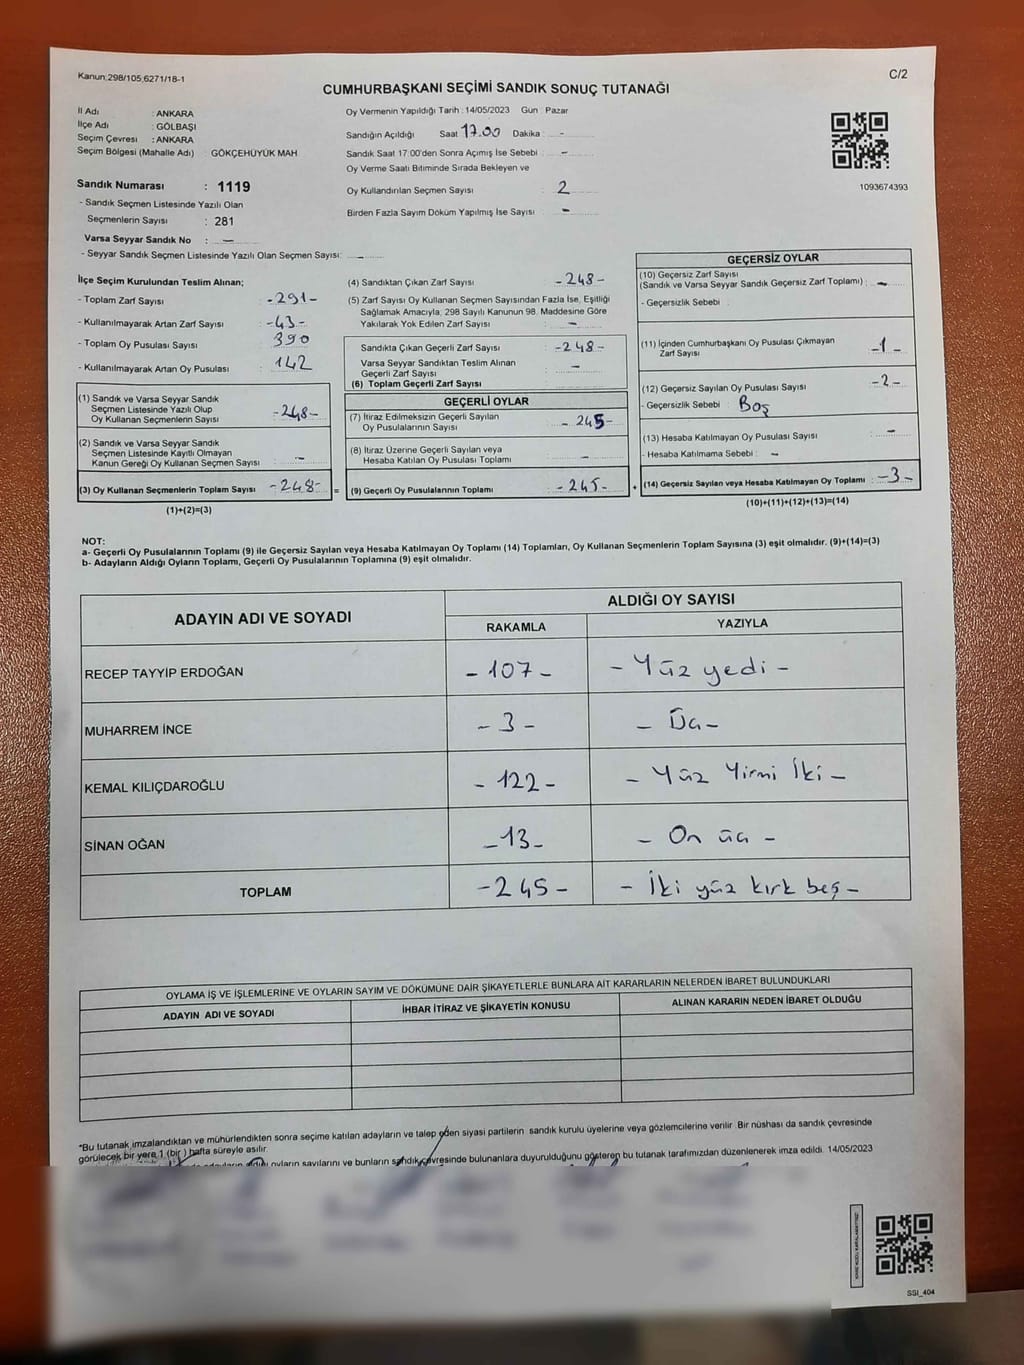 Kanun;298/105;6271/18-1
C/2
CUMHURBAŞKANI SEÇİMİ SANDIK SONUÇ TUTANAĞI
İl Adı : ANKARA
İlçe Adı : GÖLBAŞI
Seçim Çevresi : ANKARA
Seçim Bölgesi (Mahalle Adı) : GÖKÇEHÜYÜK MAH
Sandık Numarası : 1119
- Sandık Seçmen Listesinde Yazılı Olan
Seçmenlerin Sayısı : 281
Varsa Seyyar Sandık No : -
- Seyyar Sandık Seçmen Listesinde Yazılı Olan Seçmen Sayısı: -
Oy Vermenin Yapıldığı Tarih : 14/05/2023 Gün : Pazar
Sandığın Açıldığı Saat 17.00 Dakika : -
Sandık Saat 17:00'den Sonra Açımış İse Sebebi : -
Oy Verme Saati Bitiminde Sırada Bekleyen ve
Oy Kullandırılan Seçmen Sayısı : 2
Birden Fazla Sayım Döküm Yapılmış İse Sayısı : -
1093674393
İlçe Seçim Kurulundan Teslim Alınan;
- Toplam Zarf Sayısı : -291-
- Kullanılmayarak Artan Zarf Sayısı : -43-
- Toplam Oy Pusulası Sayısı : 390
- Kullanılmayarak Artan Oy Pusulası : 142
(1) Sandık ve Varsa Seyyar Sandık
Seçmen Listesinde Yazılı Olup
Oy Kullanan Seçmenlerin Sayısı : -248-
(2) Sandık ve Varsa Seyyar Sandık
Seçmen Listesinde Kayıtlı Olmayan
Kanun Gereği Oy Kullanan Seçmen Sayısı : -
(3) Oy Kullanan Seçmenlerin Toplam Sayısı : -248- =
(1)+(2)=(3)
(4) Sandıktan Çıkan Zarf Sayısı : -248-
(5) Zarf Sayısı Oy Kullanan Seçmen Sayısından Fazla İse, Eşitliği
Sağlamak Amacıyla, 298 Sayılı Kanunun 98. Maddesine Göre
Yakılarak Yok Edilen Zarf Sayısı : -
Sandıkta Çıkan Geçerli Zarf Sayısı : -248-
Varsa Seyyar Sandıktan Teslim Alınan
Geçerli Zarf Sayısı : -
(6) Toplam Geçerli Zarf Sayısı :
GEÇERLİ OYLAR
(7) İtiraz Edilmeksizin Geçerli Sayılan
Oy Pusulalarının Sayısı : - 245-
(8) İtiraz Üzerine Geçerli Sayılan veya
Hesaba Katılan Oy Pusulası Toplamı : -
(9) Geçerli Oy Pusulalarının Toplamı : -245- +
GEÇERSİZ OYLAR
(10) Geçersiz Zarf Sayısı
(Sandık ve Varsa Seyyar Sandık Geçersiz Zarf Toplamı) : -
- Geçersizlik Sebebi :
(11) İçinden Cumhurbaşkanı Oy Pusulası Çıkmayan
Zarf Sayısı : -1-
(12) Geçersiz Sayılan Oy Pusulası Sayısı : -2-
- Geçersizlik Sebebi : Boş
(13) Hesaba Katılmayan Oy Pusulası Sayısı : -
- Hesaba Katılmama Sebebi : -
(14) Geçersiz Sayılan veya Hesaba Katılmayan Oy Toplamı : -3-
(10)+(11)+(12)+(13)=(14)
NOT:
a- Geçerli Oy Pusulalarının Toplamı (9) ile Geçersiz Sayılan veya Hesaba Katılmayan Oy Toplamı (14) Toplamları, Oy Kullanan Seçmenlerin Toplam Sayısına (3) eşit olmalıdır. (9)+(14)=(3)
b- Adayların Aldığı Oyların Toplamı, Geçerli Oy Pusulalarının Toplamına (9) eşit olmalıdır.
ADAYIN ADI VE SOYADI
ALDIĞI OY SAYISI
RAKAMLA YAZIYLA
RECEP TAYYİP ERDOĞAN - 107 - - Yüz yedi -
MUHARREM İNCE - 3 - - Üç -
KEMAL KILIÇDAROĞLU - 122 - - Yüz Yirmi İki -
SİNAN OĞAN - 13 - - On üç -
TOPLAM - 245 - - İki yüz kırk beş -
OYLAMA İŞ VE İŞLEMLERİNE VE OYLARIN SAYIM VE DÖKÜMÜNE DAİR ŞİKAYETLERLE BUNLARA AİT KARARLARIN NELERDEN İBARET BULUNDUKLARI
ADAYIN ADI VE SOYADI İHBAR İTİRAZ VE ŞİKAYETİN KONUSU ALINAN KARARIN NEDEN İBARET OLDUĞU
*Bu tutanak imzalandıktan ve mühürlendikten sonra seçime katılan adayların ve talep eden siyasi partilerin sandık kurulu üyelerine veya gözlemcilerine verilir. Bir nüshası da sandık çevresinde
görülecek bir yere 1 (bir) hafta süreyle asılır.
aldığı oyların sayılarını ve bunların sandık çevresinde bulunanlara duyurulduğunu gösteren bu tutanak tarafımızdan düzenlenerek imza edildi. 14/05/2023
SSI_404